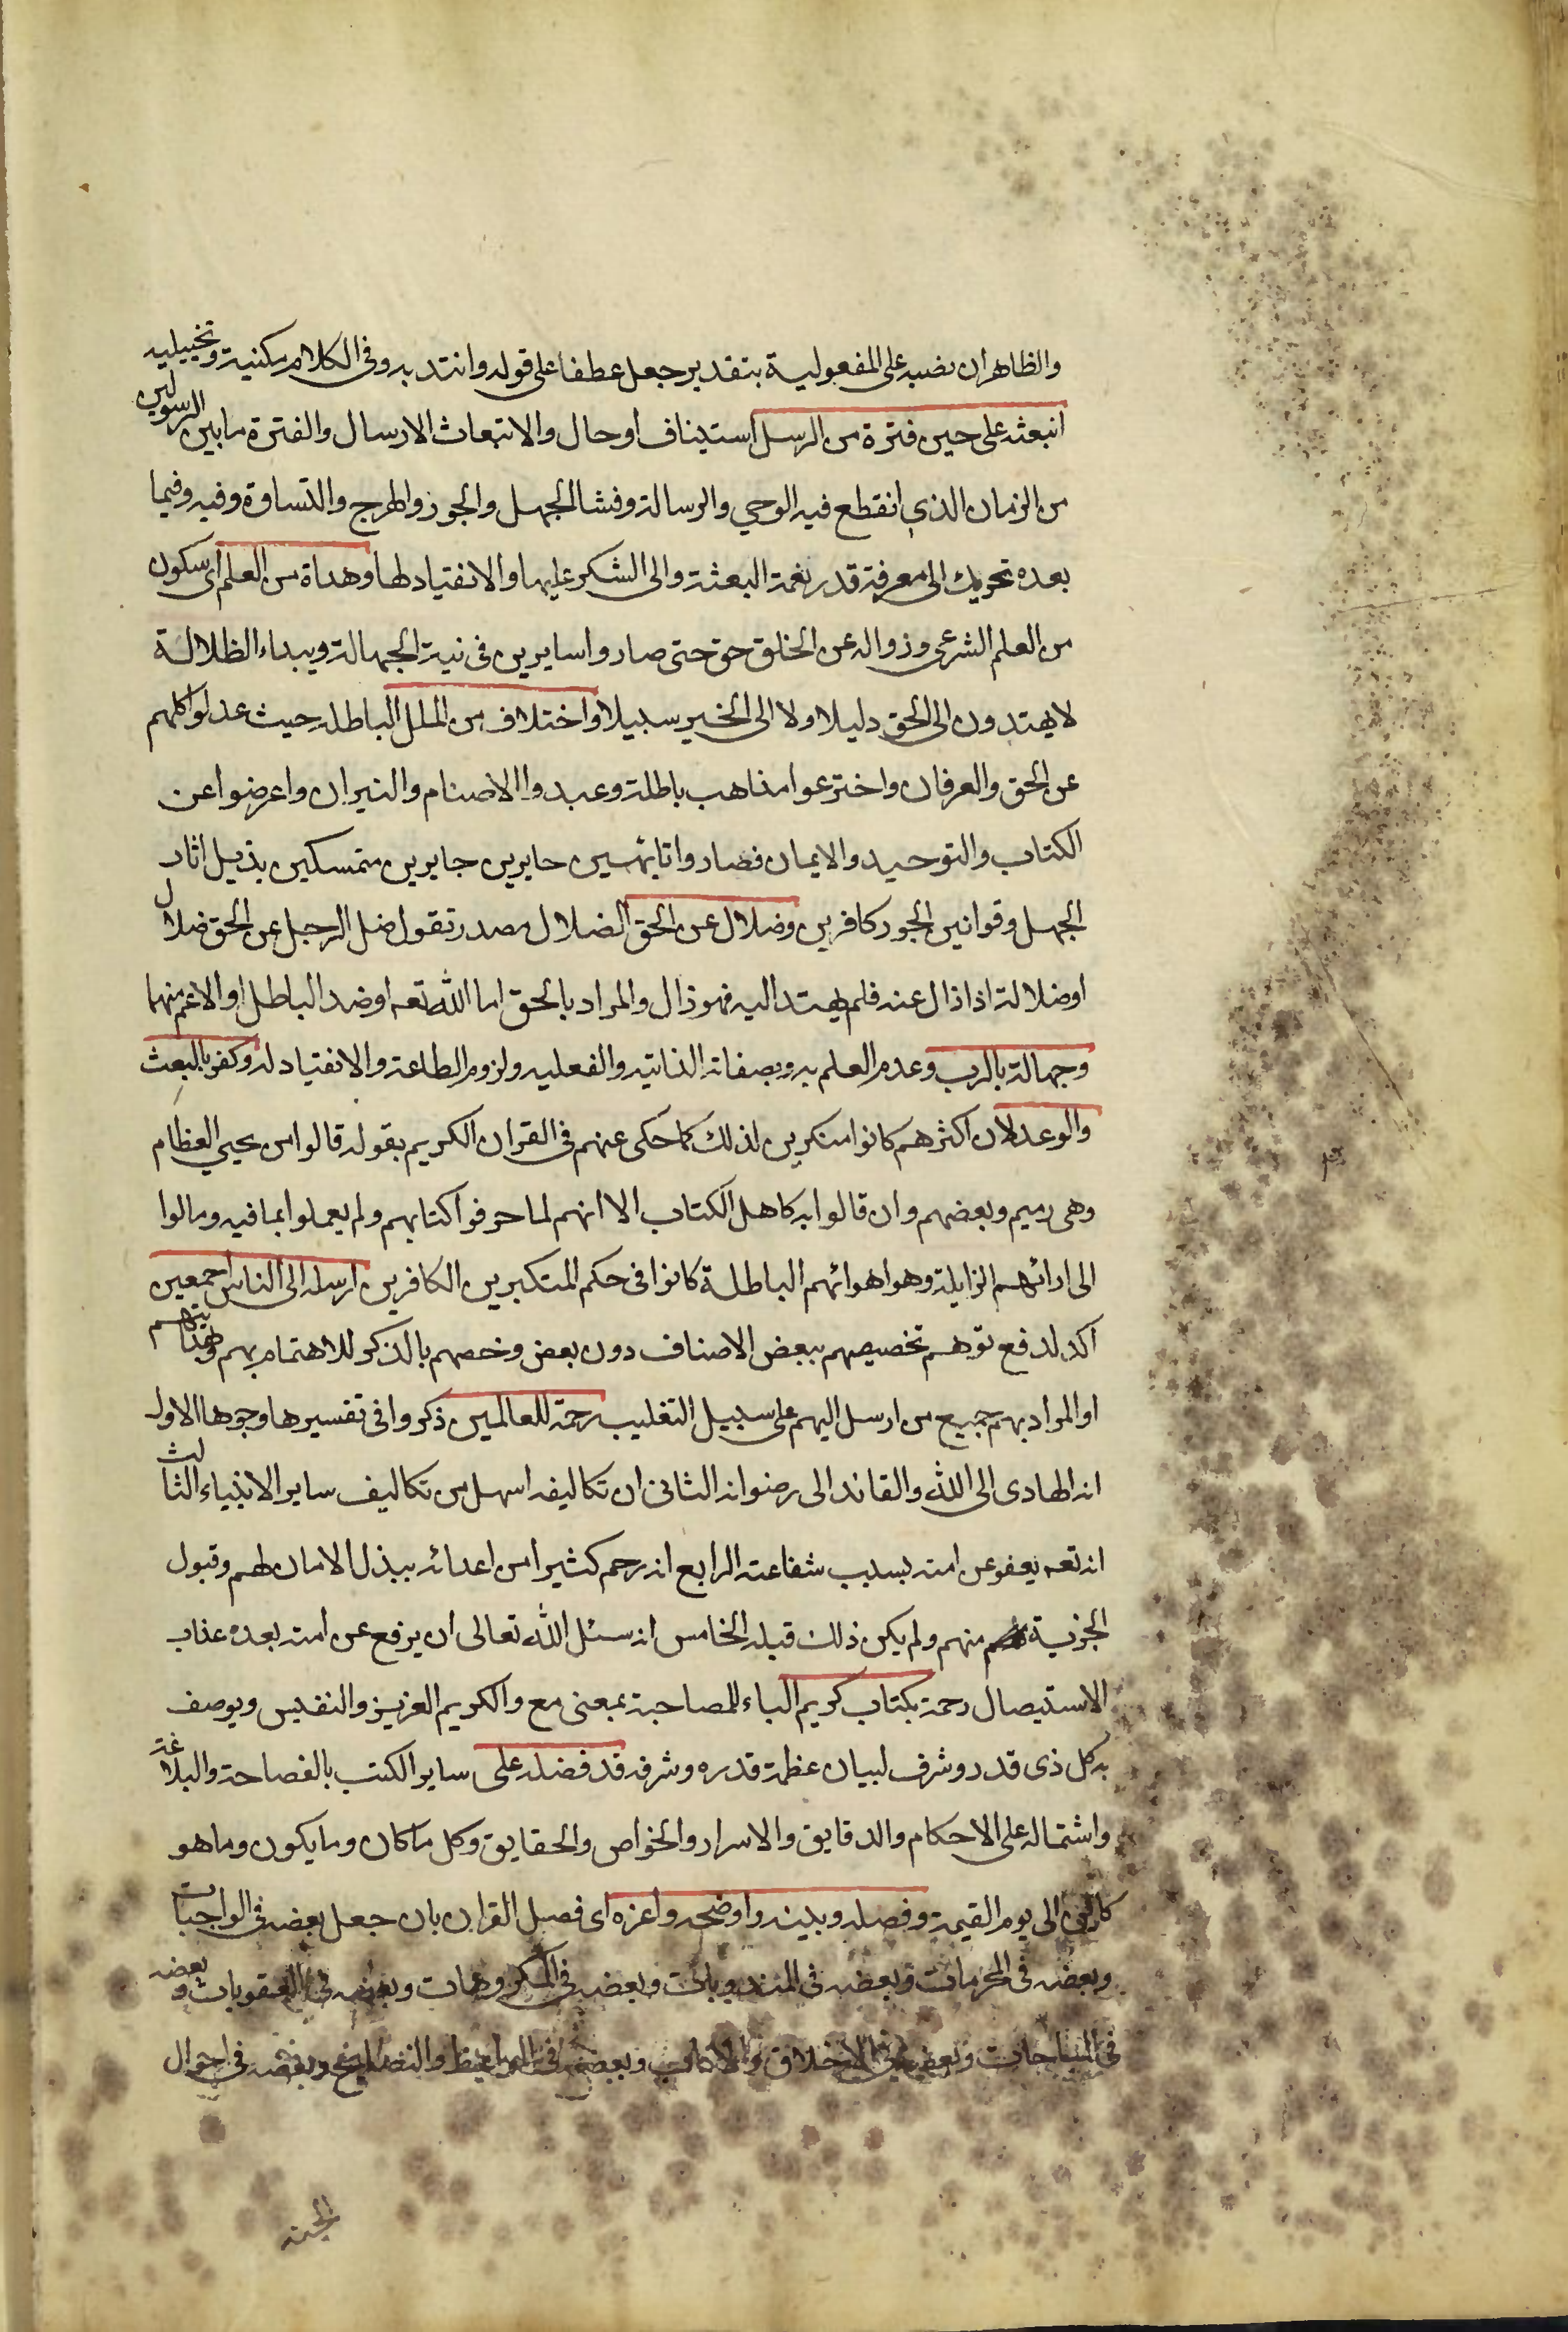 والظاهر ان نصبه على المفعولية بتقدير جعل عطفا على قوله وانتدبه وفى الكلام مكنية وتخييلية
انبعثه على حين فترة من الرسل استيناف اوحال والانبعاث الارسال والفترة مابين الرسولين
من الزمان الذي انقطع فيه الوحي والرسالة وفشا الجهل والجور والهرج والقساوة وفيه وفيما
بعده تحريك الى معرفة قدر نعمة البعثة والى الشكر عليها والانقياد لها وهداة من العلم اى سكون
من العلم الشرعى وزواله عن الخلق حتى صاروا سايرين فى تيه الجهالة وبيداء الظلالة
لا يهتدون الى الحق دليلا ولا الى الخير سبيلا واختلاف من الملل الباطله حيث عدلوا كلهم
عن الحق والعرفان واخترعوا مذاهب باطلة وعبدوا الاصنام والنيران واعرضوا عن
الكتاب والتوحيد والايمان فصاروا تائهين حايرين جايرين متمسكين بذيل اثار
الجهل وقوانين الجور كافرين وضلال عن الحق الضلال مصدر تقول ضل الرجل عن الحق ضلالا
او ضلالة اذا زال عنه فلم يهتد اليه فهو ذال والمراد بالحق اما الله تعه او ضد الباطل او الاعم منهما
وجهالة بالرب وعدم العلم به وبصفاته الذاتيه والفعليه ولزوم الطاعة والانقياد له وكفر بالبعث
والوعد لان اكثرهم كانوا منكرين لذلك كما حكى عنهم فى القران الكريم بقوله قالوا من يحيي العظام
وهى رميم وبعضهم وان قالوا به كاهل الكتاب الا انهم لما حرفوا كتابهم ولم يعملوا بما فيه ومالوا
الى ارائهم الزايلة وهوا هوائهم الباطلة كانوا فى حكم المتكبرين الكافرين ارسله الى الناس اجمعين
اكد لدفع توهم تخصيصهم ببعض الاصناف دون بعض وخصهم بالذكر للاهتمام بهم وبهدايتهم
او المراد بهم جميع من ارسل اليهم على سبيل التغليب رحمة للعالمين ذكروا فى تفسيرها وجوها الاول
انه الهادى الى الله والقائد الى رضوانه الثانى ان تكاليفه اسهل من تكاليف ساير الانبياء الثالث
انه تعه يعفو عن امته بسبب شفاعته الرابع انه رحم كثيرا من اعدائه ببذل الامان لهم وقبول
الجزية منهم ولم يكن ذلك قبله الخامس انه سئل الله تعالى ان يرفع عن امته بعده عذاب
الاستيصال رحمة بكتاب كريم الباء للمصاحبة بمعنى مع والكريم العزيز والنفيس ويوصف
به كل ذى قدر وشرف لبيان عظمة قدره وشرفه قد فضله على ساير الكتب بالفصاحة والبلاغة
واشتماله على الاحكام والدقايق والاسرار والخواص والحقايق وكل ما كان وما يكون وما هو
كاين الى يوم القيمة وفصله وبينه واوضحه واعزه اى فصل القران بان جعل بعضه فى الواجبات
وبعضه فى المحرمات وبعضه فى المندوبات وبعضه فى المكروهات وبعضه فى العقوبات وبعضه
فى المباحات وبعضه فى الاخلاق والاداب وبعضه فى المواعظ والنصايح وبعضه فى احوال
الجنة